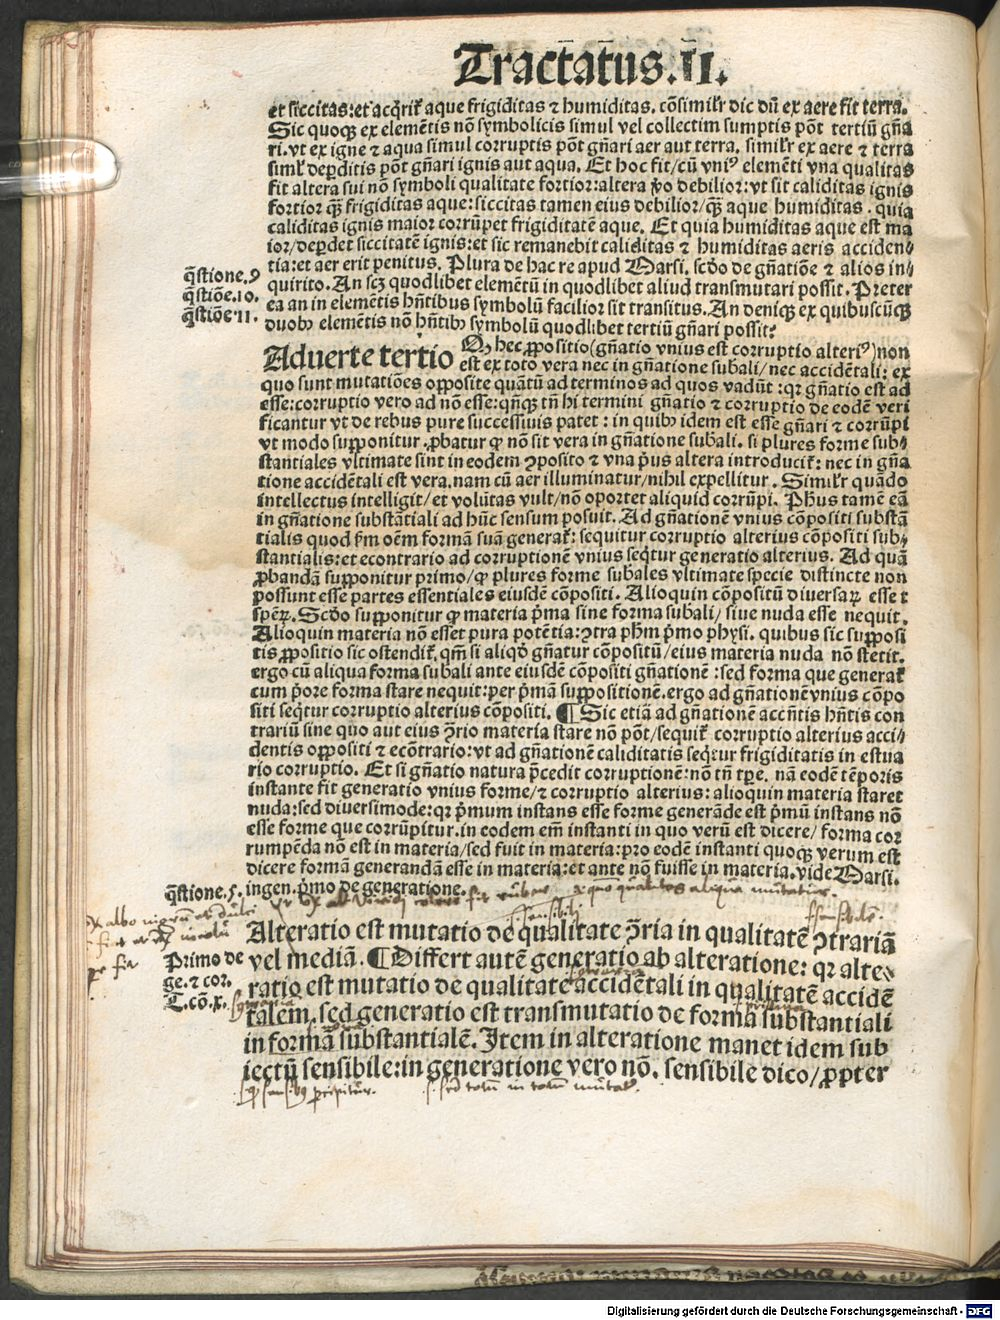 Tractatus.II.
et siccitas: et acq̄rit̄ aque frigiditas ⁊ humiditas. cōsimilr̄ dic dū ex aere fit terra.
Sic quoqꝫ ex elemētis nō symbolicis simul vel collectim sumptis pōt tertiū gn̄a
ri. vt ex igne ⁊ aqua simul corruptis pōt gn̄ari aer aut terra. similr̄ ex aere ⁊ terra
similr̄ deꝑditis pōt gn̄ari ignis aut aqua. Et hoc fit/cū vniꝰ elemēti vna qualitas
fit altera sui nō symboli qualitate fortior: altera ꝟo debilior: vt sit caliditas ignis
fortior qꝫ̄ frigiditas aque: siccitas tamen eius debilior/qꝫ̄ aque humiditas. quia
caliditas ignis maior corrūpet frigiditatē aque. Et quia humiditas aque est ma
ior/deꝑdet siccitatē ignis: et sic remanebit caliditas ⁊ humiditas aeris acciden⸗
tia: et aer erit penitus. Plura de hac re apud Marsi. scd̄o de gn̄atiōe ⁊ alios in⸗
q̄stione.9
quirito. An scꝫ quodlibet elemētū in quodlibet aliud transmutari possit. Preter
q̄stiōe.10.
ea an in elemētis hn̄tibus symbolū facilior sit transitus. An deniqꝫ ex quibuscūqꝫ
q̄stiōe.11.
duobꝫ elemētis nō hn̄tibꝫ symbolū quodlibet tertiū gn̄ari possit:
Aduerte tertio Qꝫ hec ꝓpositio (gn̄atio vnius est corruptio alteriꝰ) non
est ex toto vera nec in gn̄atione subali/nec accidētali: ex
quo sunt mutatiōes opposite quātū ad terminos ad quos vadūt: qꝛ gn̄atio est ad
esse: corruptio vero ad nō esse: qn̄qꝫ tn̄ hi termini gn̄atio ⁊ corruptio de eodē veri
ficantur vt de rebus pure successiuis patet: in quibꝫ idem est esse gn̄ari ⁊ corrūpi
vt modo supponitur. ꝓbatur ꝙ nō sit vera in gn̄atione subali. si plures forme sub⸗
stantiales vltimate sint in eodem ꝯposito ⁊ vna pͥus altera introducit̄: nec in gn̄a
tione accidētali est vera. nam cū aer illuminatur/nihil expellitur. Similr̄ quādo
intellectus intelligit/et volūtas vult/nō oportet aliquid corrūpi. Ph̄us tamē eā
in gn̄atione substātiali ad hūc sensum posuit. Ad gn̄ationē vnius cōpositi substā
tialis quod ẜm oēm formā suā generat̄: sequitur corruptio alterius cōpositi sub⸗
stantialis: et econtrario ad corruptionē vnius seq̄tur generatio alterius. Ad quā
ꝓbandā supponitur primo/ꝙ plures forme subales vltimate specie distincte non
possunt esse partes essentiales eiusdē cōpositi. Alioquin cōpositū diuersaꝝ esse t
speꝝ. Scd̄o supponitur ꝙ materia pͥma sine forma subali/siue nuda esse nequit.
Alioquin materia nō esset pura potētia: ꝯtra ph̄m pͥmo physi. quibus sic supposi
tis ꝓpositio sic ostendit̄. qm̄ si aliqd̄ gn̄atur cōpositū/eius materia nuda nō stetit.
ergo cū aliqua forma subali ante eiusdē cōpositi gn̄ationē: sed forma que generat̄
cum pͥore forma stare nequit: per pͥmā suppositionē. ergo ad gn̄ationē vnius cōpo
siti seq̄tur corruptio alterius cōpositi. ¶ Sic etiā ad gn̄ationē accn̄tis hn̄tis con
trariū sine quo aut eius ꝯ̄rio materia stare nō pōt/sequit̄ corruptio alterius acci⸗
dentis oppositi ⁊ ecōtrario: vt ad gn̄ationē caliditatis seq̄tur frigiditatis in estua
rio corruptio. Et si gn̄atio natura p̄cedit corruptionē: nō tn̄ tp̄e. nā eodē tēporis
instante fit generatio vnius forme/⁊ corruptio alterius: alioquin materia staret
nuda: sed diuersimode: qꝛ pͥmum instans esse forme generāde est pͥmū instans nō
esse forme que corrūpitur. in eodem em̄ instanti in quo verū est dicere/forma cor
rumpēda nō est in materia/sed fuit in materia: pro eodē instanti quoqꝫ verum est
dicere formā generandā esse in materia: et ante nō fuisse in materia. vide Marsi.
q̄stione.5.
in gen. pͥmo de generatione.
Alteratio est mutatio de qualitate ꝯ̄ria in qualitatē ꝯtrariā
Primo de
vel mediā. ¶ Differt autē generatio ab alteratione: qꝛ alte⸗
ge. ⁊ cor.
ratio est mutatio de qualitate accidētali in qualitatē accidē
T. cō. x.
talem. sed generatio est transmutatio de forma substantiali
in formā substantialē. Item in alteratione manet idem sub
iectū sensibile: in generatione vero nō. sensibile dico/ꝓpter
Digitalisierung gefördert durch die Deutsche Forschungsgemeinschaft - DFG